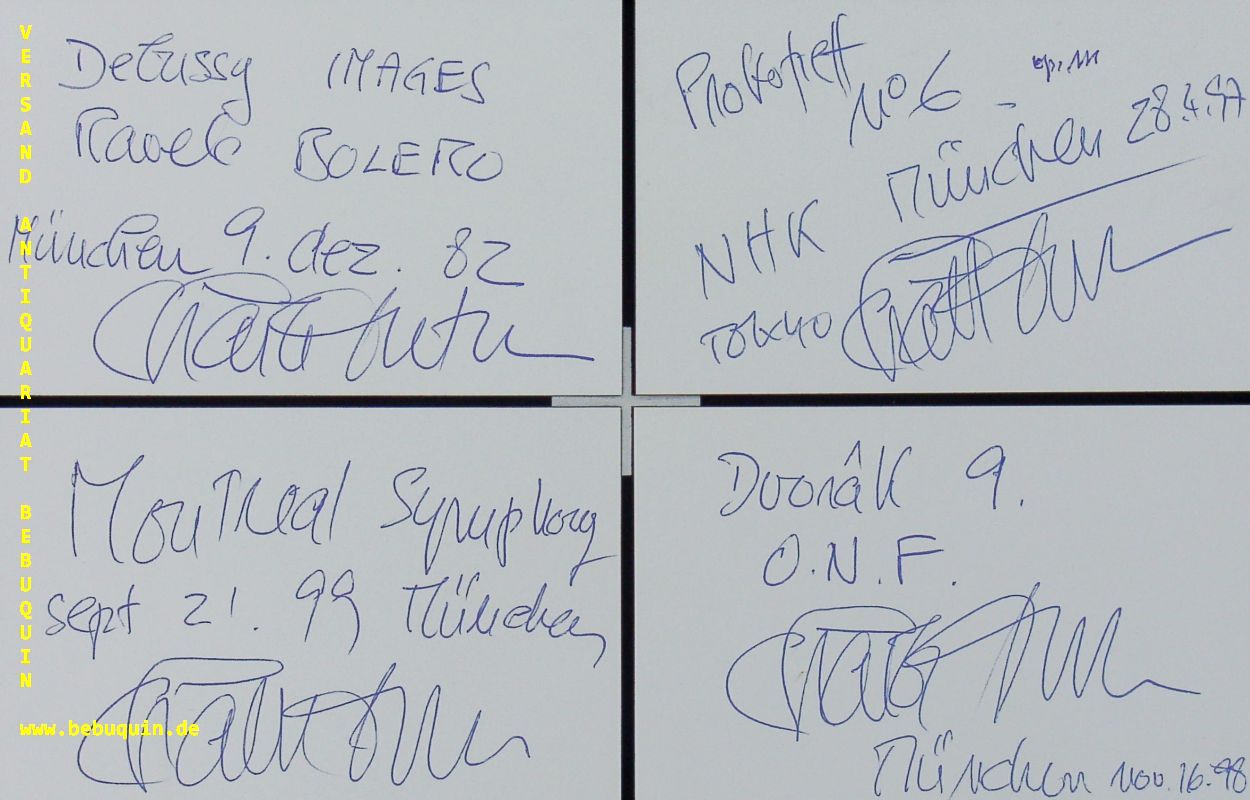 Debussy IMAGES
Ravel BOLERO
München 9. dez. 82
Prokofieff
No 6 -
München 28.4.97
NHK
TOKYO
Montreal Symphony
sept 21. 99 München
Dvorâk 9.
O.N.F.
München nov. 16. 98
VERSAND ANTIQUARIAT BEBUQUIN
www.bebuquin.de